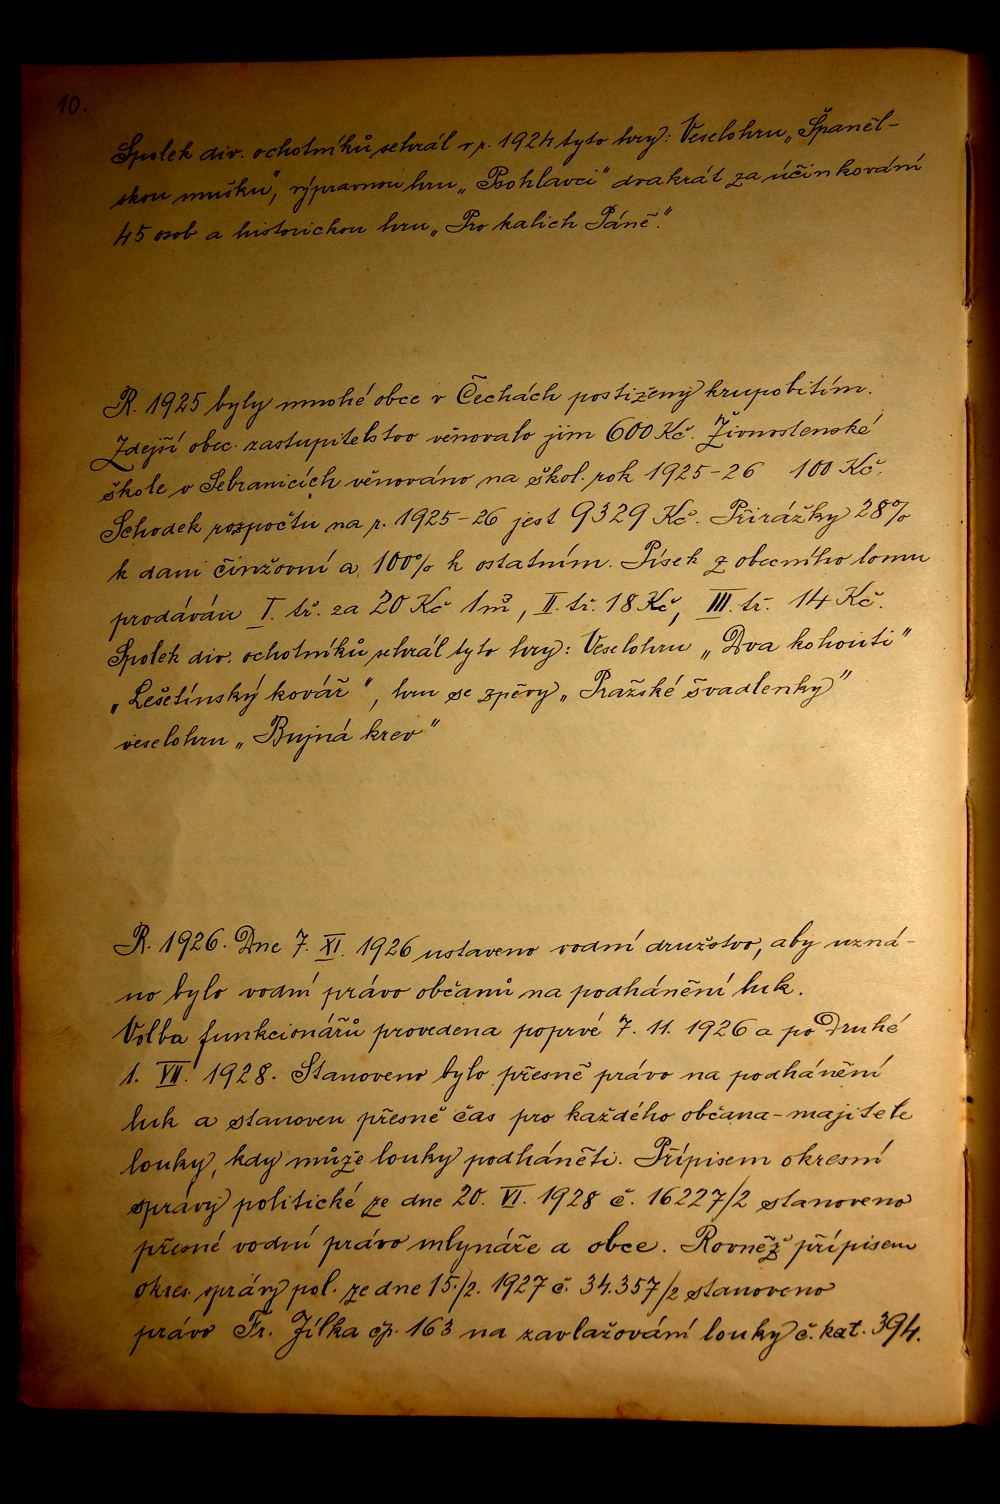 10.
Spolek div. ochotníků sehrál v r. 1924 tyto hry: Veselohru „Španěl-
skou mušku“, výpravnou hru „Psohlavci“ dvakrát za účinkování
45 osob a historickou hru „Pro kalich Páně.“
R. 1925 byly mnohé obce v Čechách postiženy krupobitím.
Zdejší obec. zastupitelstvo věnovalo jim 600 Kč. Živnostenské
škole v Sebranicích věnováno na škol. rok 1925-26 100 Kč.
Schodek rozpočtu na r. 1925-26 jest 9329 Kč. Přirážky 28%
k dani činžovní a 100% k ostatním. Písek z obecního lomu
prodáván I. tř. za 20 Kč 1 m³, II. tř. 18 Kč, III. tř. 14 Kč.
Spolek div. ochotníků sehrál tyto hry: Veselohru „Dva kohouti“
„Lešetínský kovář“, hru se zpěvy „Pražské švadlenky“
veselohru „Bujná krev“
R. 1926. Dne 7. XI. 1926 ustaveno vodní družstvo, aby uzná-
no bylo vodní právo občanů na podhánění luk.
Volba funkcionářů provedena poprvé 7. 11. 1926 a po Druhé
1. VII. 1928. Stanoveno bylo přesně právo na podhánění
luk a stanoven přesně čas pro každého občana-majitele
louky, kdy může louky podháněti. Přípisem okresní
správy politické ze dne 20. VI. 1928 č. 16227/2 stanoveno
přesné vodní právo mlynáře a obce. Rovněž přípisem
okres. správy pol. ze dne 15./2. 1927 č. 34.357/2 stanoveno
právo Fr. Jílka čp. 163 na zavlažování louky č. kat. 394.